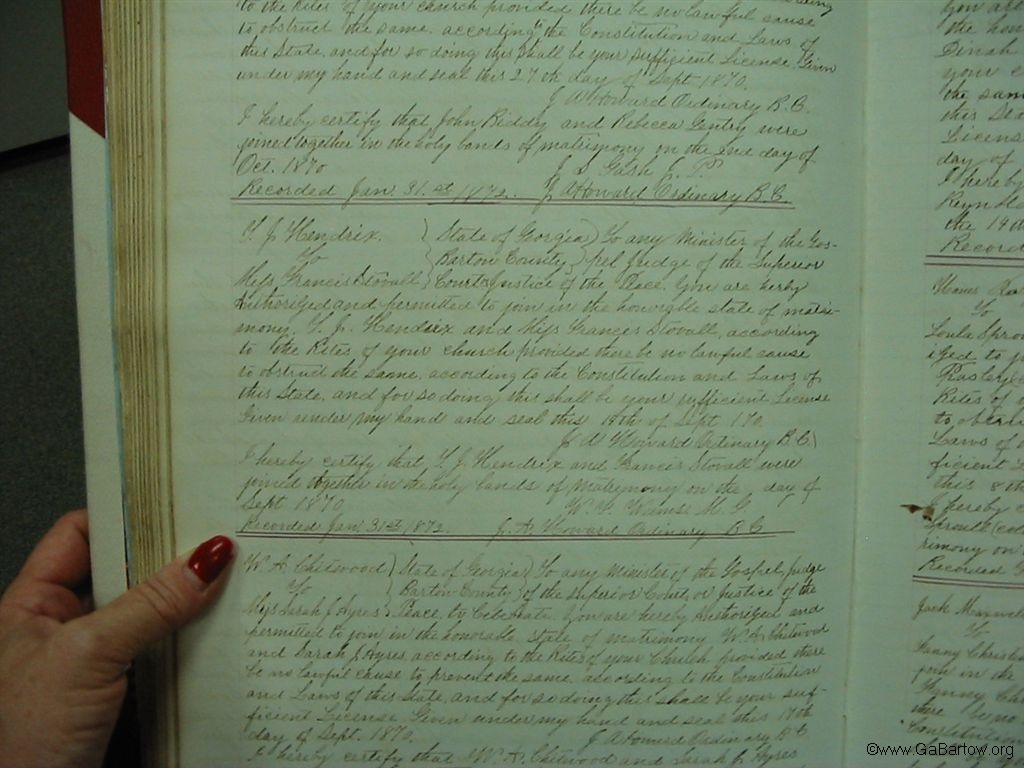 to the Rites of your church provided there be no lawful cause
to obstruct the same, according to the Constitution and Laws of
this State, and for so doing this shall be your sufficient License. Given
under my hand and seal this 27th day of Sept. 1870.
J A Howard Ordinary B. C.
I hereby certify that John Biddy and Rebecca Gentry were
joined together in the holy bands of matrimony on the 2nd day of
Oct. 1870 J. P.
Recorded Jan. 31.st 1872. J. A Howard Ordinary B. C.
T. J. Hendrix. State of Georgia To any Minister of the Gos-
To Bartow County pel, Judge of the Superior
Miss Francis Stovall Court Justice of the Peace. You are herby
Authorized and permitted to join in the honorable state of matri-
mony, T. J. Hendrix and Miss Frances Stovall, according
to the Rites of your church provided there be no lawful cause
to obstruct the same, according to the Constitution and Laws of
this State, and for so doing this shall be your sufficient License
Given under my hand and seal this 19th of Sept. 170.
J A Howard Ordinary B. C.
I hereby certify that T. J. Hendrix and Francis Stovall were
joined together in the holy bands of Matrimony on the day of
Sept 1870 M. G.
Recorded Jan 31st 1872. J. A. Howard Ordinary B C
W. A. Chitwood State of Georgia To any Minister of the Gospel, Judge
To Bartow County of the Superior Court, or Justice of the
Miss Sarah J Ayres Peace, to Celebrate. You are hereby Authorized and
permitted to join in the honorable state of matrimony W. A. Chitwood
and Sarah J. Ayres, according to the Rites of your Church provided there
be no lawful cause to prevent the same, according to the Constitution
and Laws of this State, and for so doing this shall be your suf-
ficient License. Given under my hand and seal this 17th
day of Sept. 1870. J A Howard Ordinary B C
I hereby certify that W. A. Chitwood and Sarah J. Ayres
you all
the hon
Dinah
your c
the sam
this Sta
License
day of
I hereby
Reynol
the 14th
Record
To
Loula Sprou
Rites of
to obstru
Laws of
ficient L
this 8th
I hereby c
rimony on
Recorded
Jack
To
Fanny Christ
join in the
there be no
Constitution
©www.GaBartow.org